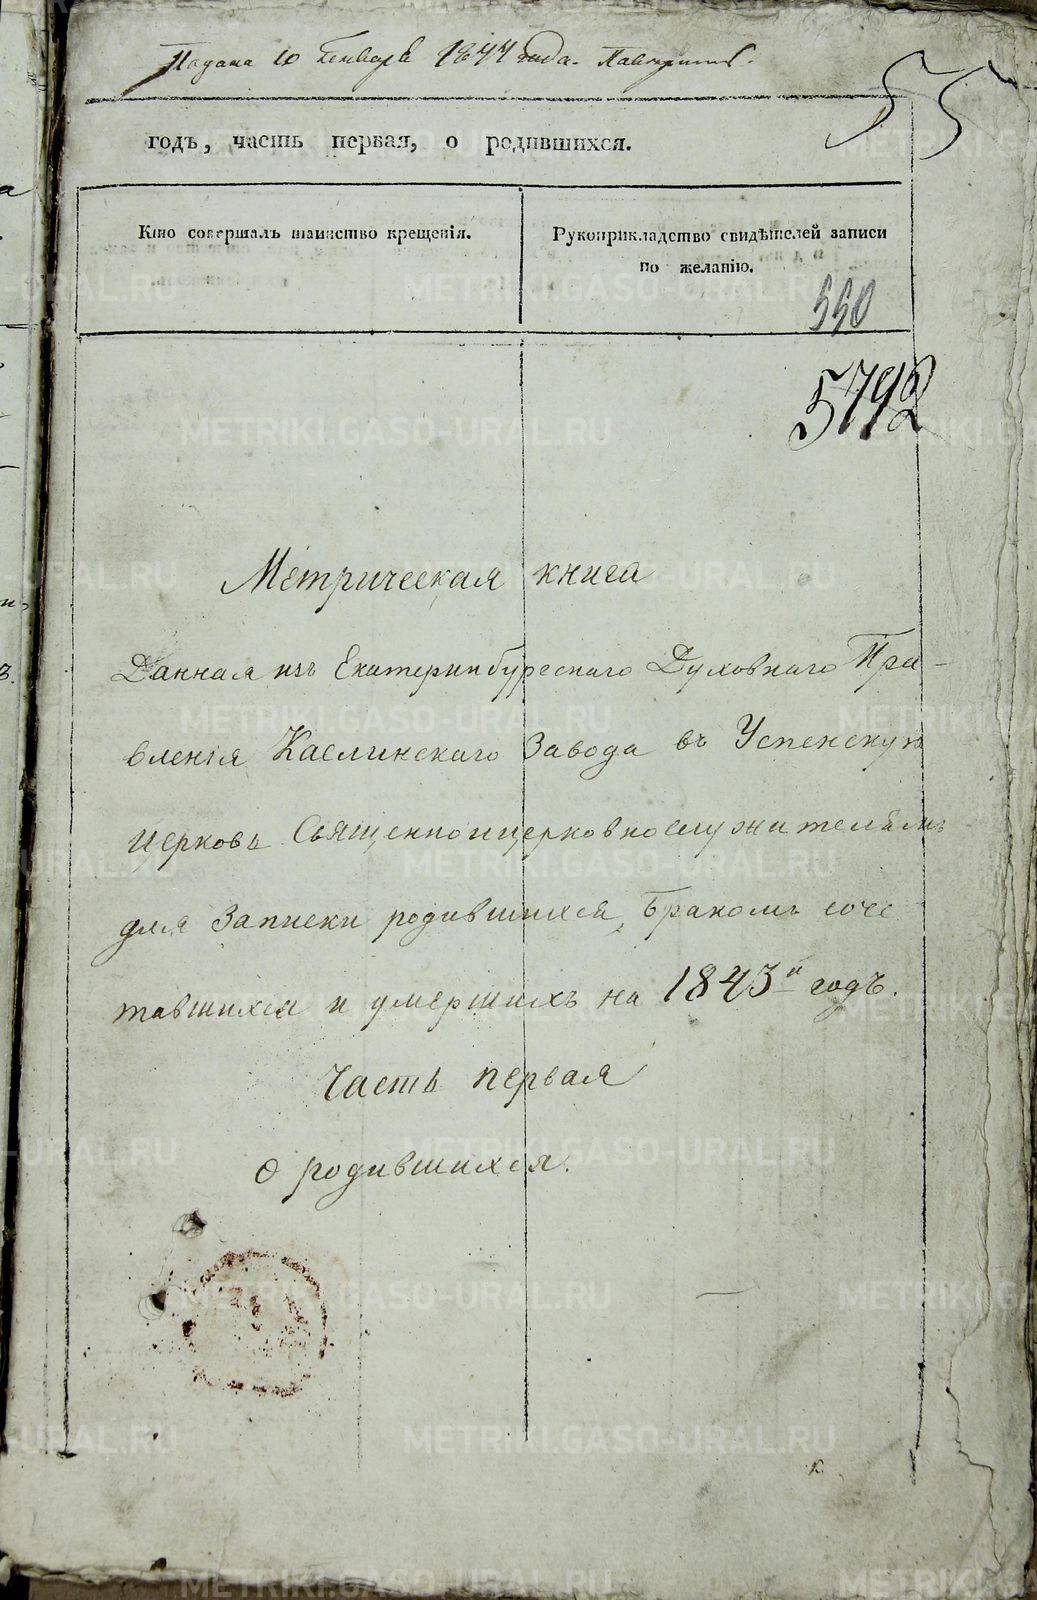 Подана 10 Генваря 1844 года.
55
годъ, часть первая, о родившихся.
Кто совершалъ таинство крещенія.
Рукоприкладство свидѣтелей записи
по желанію.
550
5792
Метрическая книга
Данная изъ Екатеринбургскаго Духовнаго Пра-
вленія Каслинскаго Завода въ Успенскую
Церковь Священноицерковнослужителямъ
для Записки родившихся, Бракомъ соче
тавшихся и умершихъ на 1843й годъ.
Часть первая
О родившихся.
METRIKI.GASO-URAL.RU